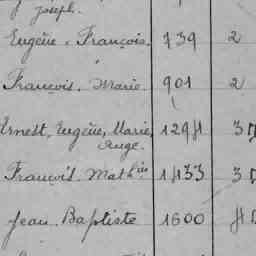 Joseph.
Eugène, François. 739 2
François. Marie. 901 2
Ernest, Eugène, Marie, 1294 3
Ange.
François. Mathin 1433 3
Jean. Baptiste 1600 4